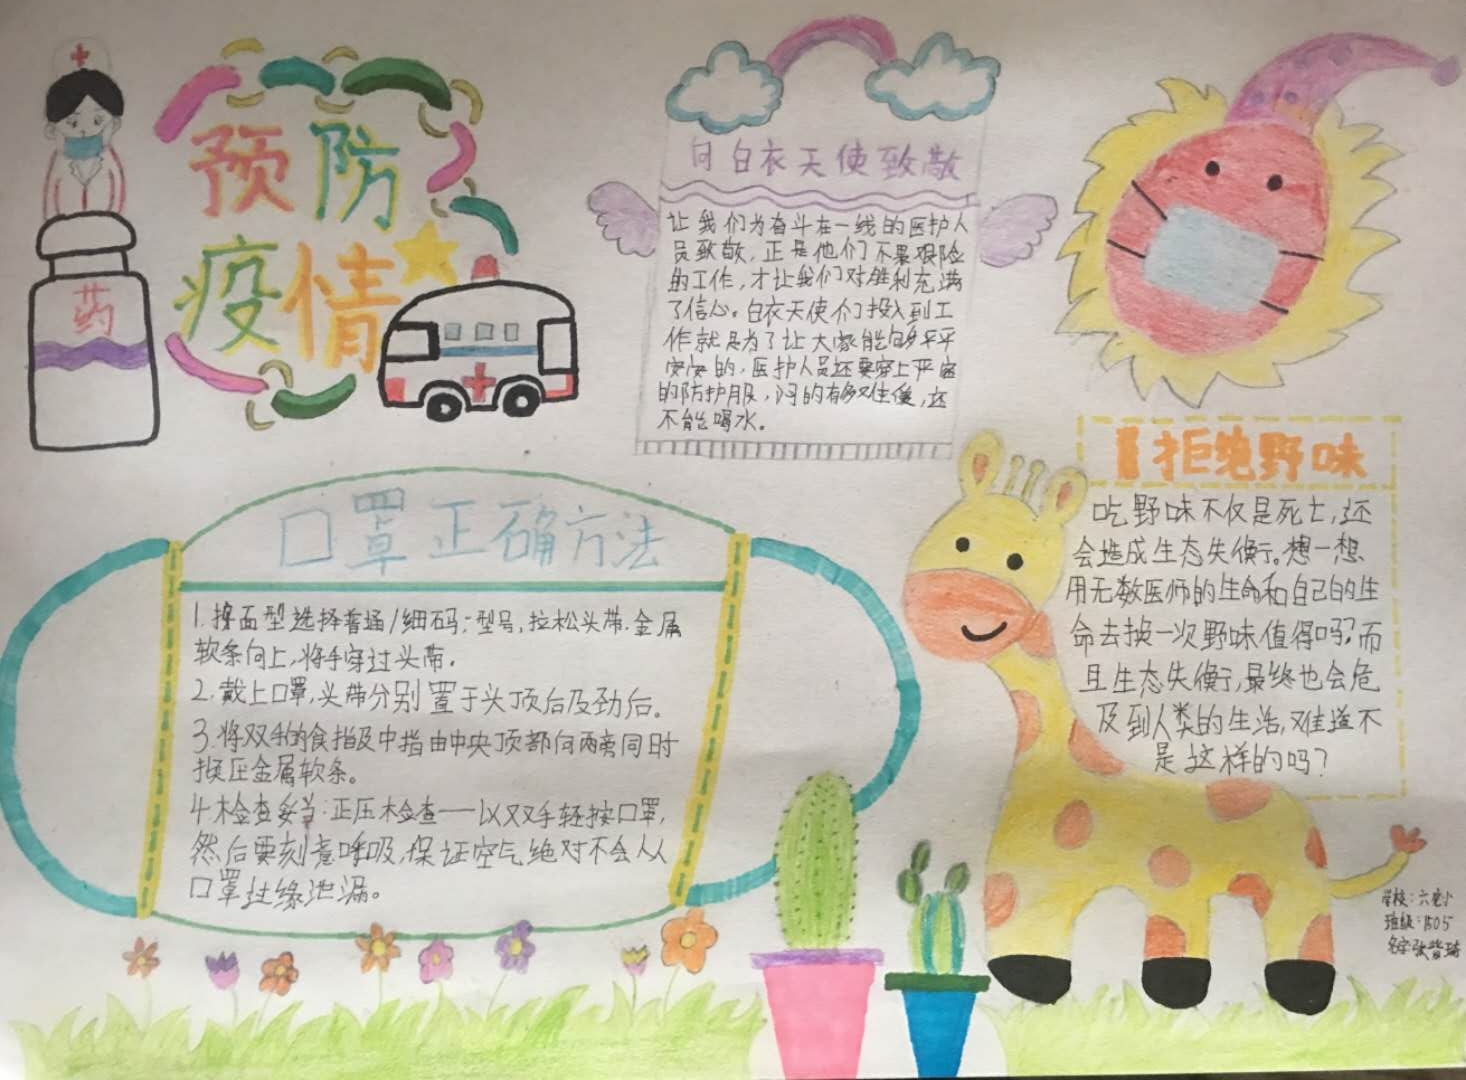 预防
疫情
药
向白衣天使致敬
让我们为奋斗在一线的医护人
员致敬，正是他们不畏艰险
的工作，才让我们对胜利充满
了信心。白衣天使们投入到工
作就是为了让大家能够平平
安安的，医护人员还要穿上严密
的防护服，闷的有多难受，还
不能喝水。
拒绝野味
吃野味不仅是死亡，还
会造成生态失衡。想一想
用无数医师的生命和自己的生
命去换一次野味值得吗？而
且生态失衡，最终也会危
及到人类的生活，难道不
是这样的吗？
口罩正确方法
1.择面型选择普通/细码；型号，拉松头带.金属
软条向上，将手穿过头带.
2.戴上口罩，头带分别置于头顶后及劲后。
3.将双手的食指及中指由中央顶部向两旁同时
按压金属软条。
4.检查妥当：正压检查——以双手轻按口罩，
然后要刻意呼吸，保证空气绝对不会从
口罩边缘泄漏。
学校：六
班级：1505
名字张